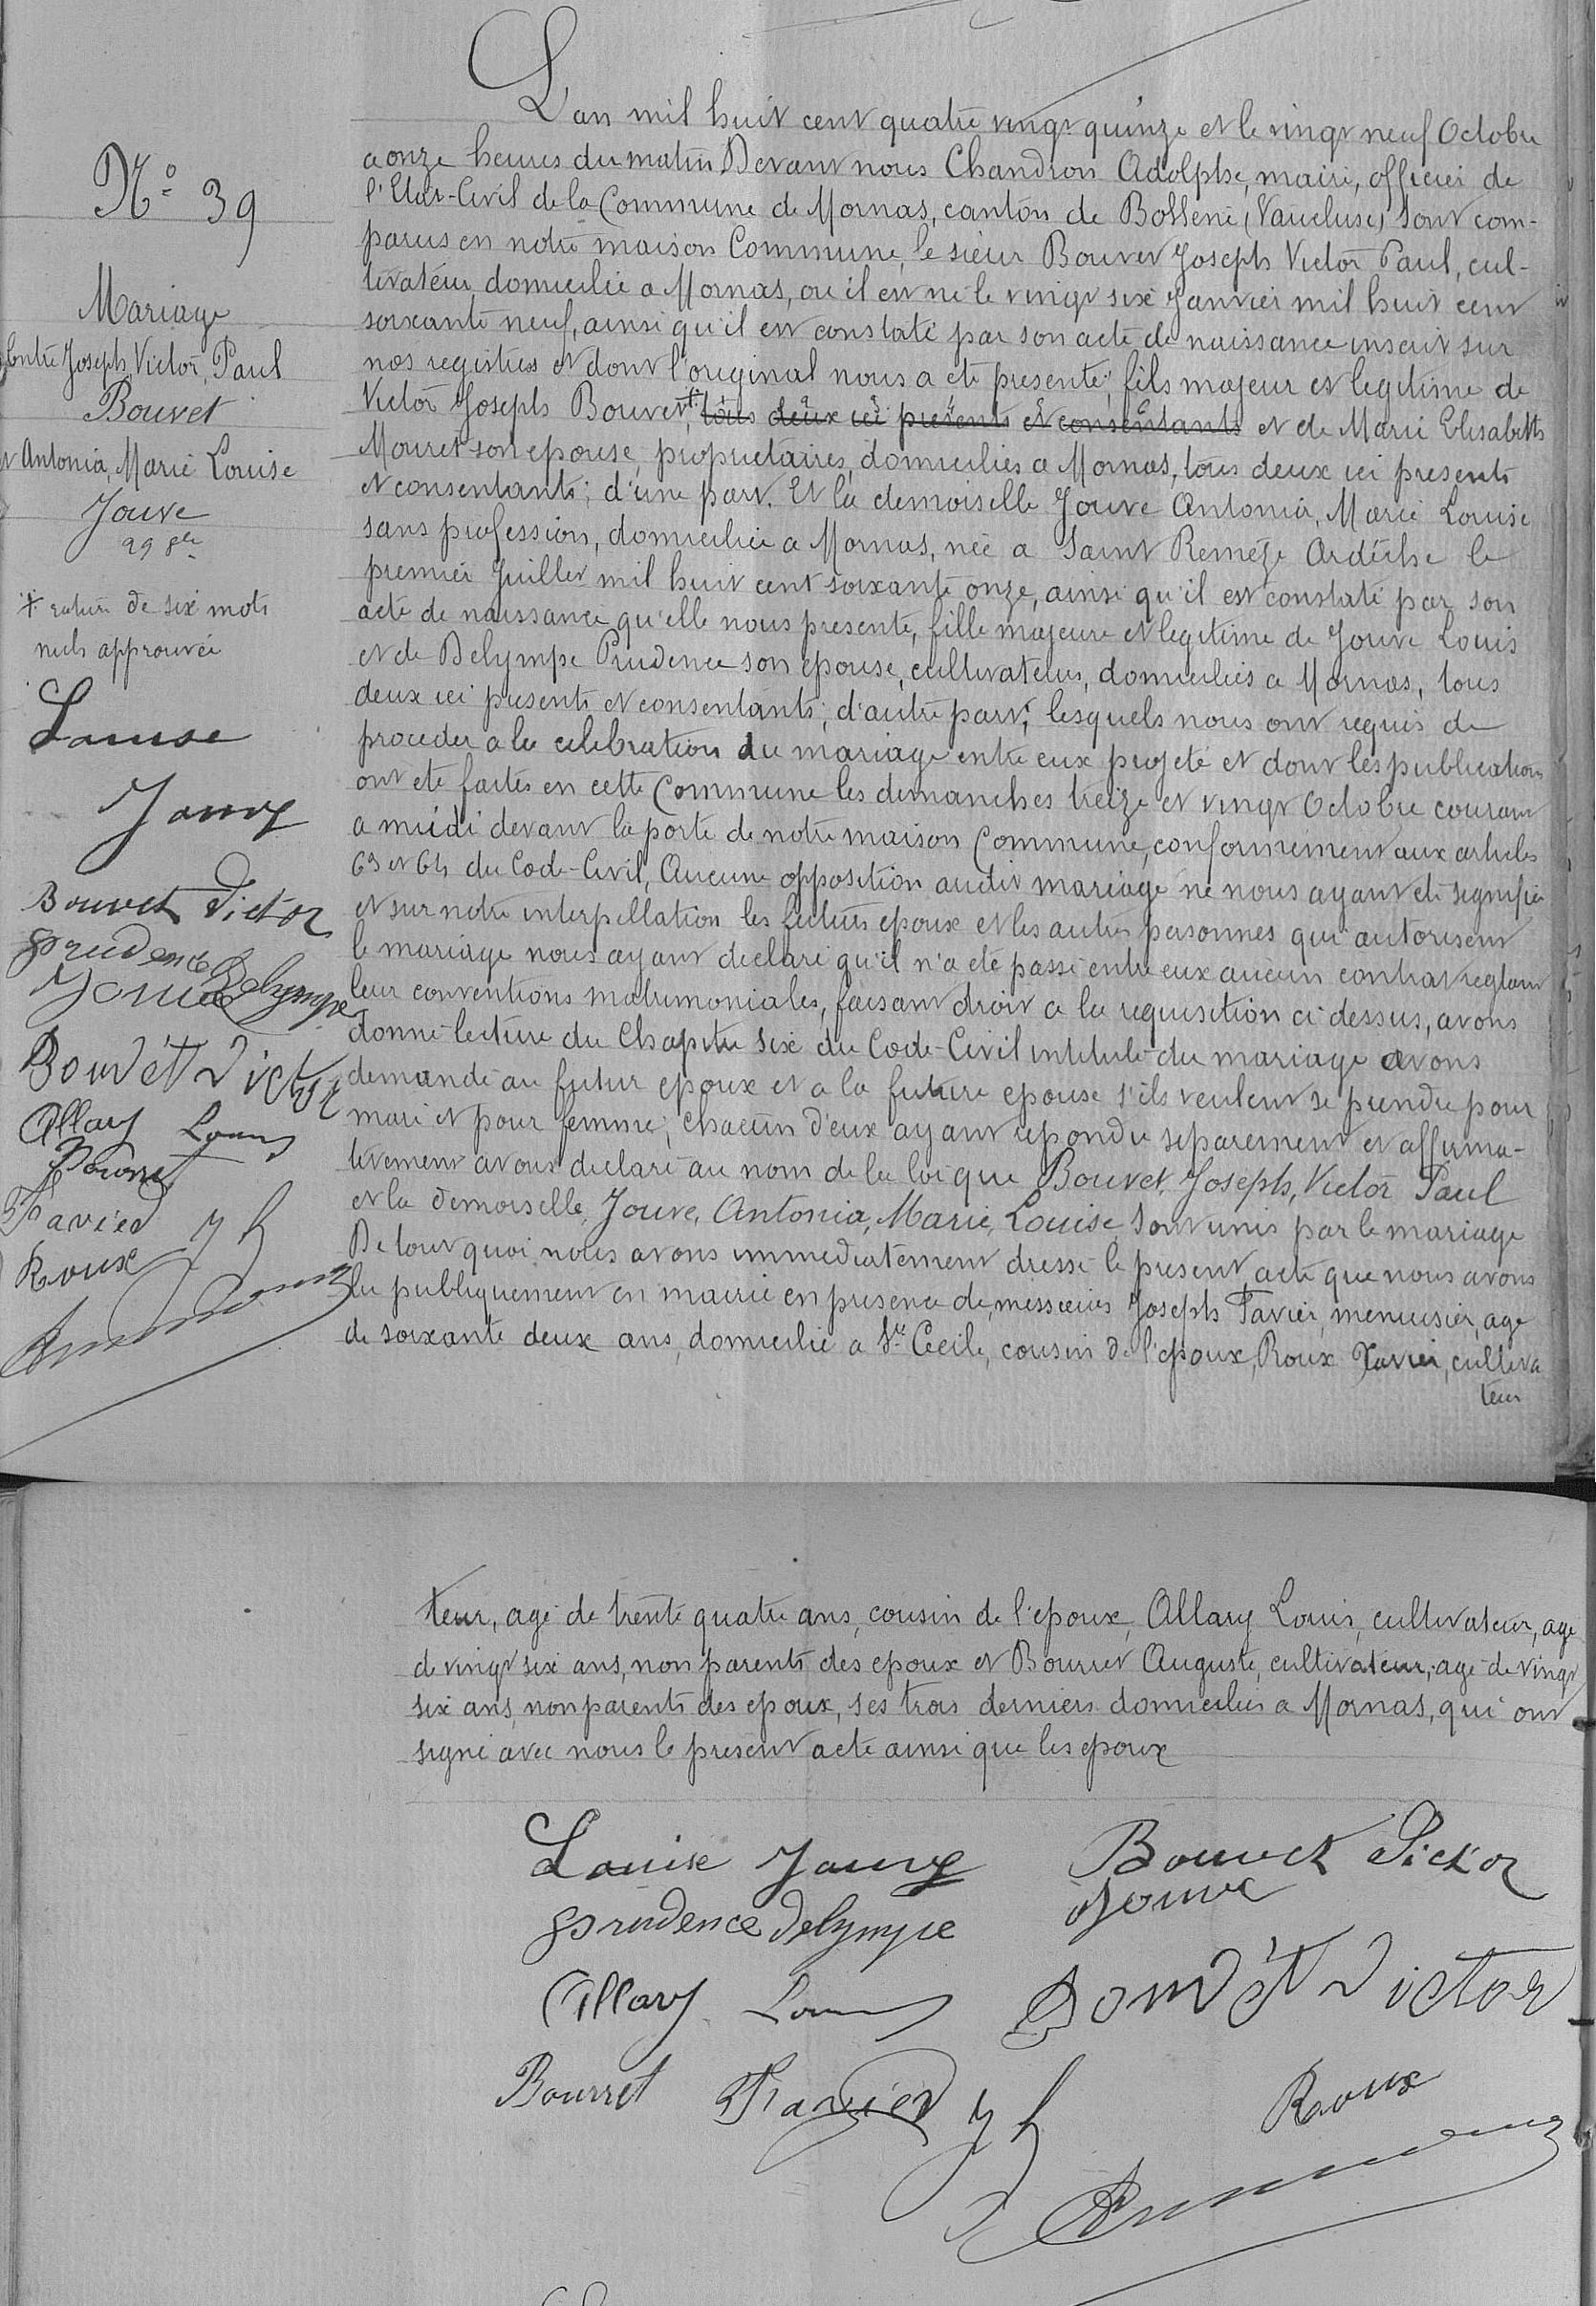 N° 39
Mariage
Entre Joseph, Victor, Paul
Bouvet
et Antonia, Marie Louise
Jouve
29 8bre
* rature de six mots
nuls approuvée
Louise
Jouve
Bouvet Victor
prudence Delympe
Jouve
Bouvet Victor
Allary Louis
Bourret
Favier J h
Roux
L'an mil huit cent quatre vingt quinze et le vingt neuf Octobre
a onze heures du matin Devant nous Chandron Adolphe, maire, officier de
l'Etat-Civil de la Commune de Mornas, canton de Bollene (Vaucluse) sont com-
parus en notre maison Commune, le sieur Bouvet Joseph Victor Paul, cul-
tivateur, domicilie a Mornas, ou il est né le vingt six Janvier mil huit cent
soixante neuf, ainsi qu'il est constaté par son acte de naissance inscrit sur
nos registres et dont l'original nous a ete presenté; fils majeur et legitime de
Victor Joseph Bouvet, * tous deux ici présents et consentants et de Marie Elisabeth
Mouret son epouse, proprietaires, domicilies a Mornas, tous deux ici presents
et consentants; d'une part. Et la demoiselle Jouve Antonia, Marie Louise
sans profession, domiciliée a Mornas, née a Saint Remèze Ardèche le
premier Juillet mil huit cent soixante onze, ainsi qu'il est constaté par son
acte de naissance qu'elle nous presente, fille majeure et legitime de Jouve Louis
et de Delympe Prudence son epouse, cultivateurs, domicilies a Mornas, tous
deux ici presents et consentants; d'autre part; lesquels nous ont requis de
proceder a la celebration du mariage entre eux projeté et dont les publications
ont ete faites en cette Commune les dimanches treize et vingt Octobre courant
a midi devant la porte de notre maison Commune, conformement aux articles
63 et 64 du Code-Civil, Aucune opposition audit mariage ne nous ayant eté signifiée
et sur notre interpellation les futurs epoux et les autres personnes qui autorisent
le mariage nous ayant declaré qu'il n'a eté passé entre eux aucun contrat reglant
leur conventions matrimoniales, faisant droit a la requisition ci-dessus, avons
donné lecture du Chapitre six du Code-Civil intitulé du mariage avons
demandé au futur epoux et a la future epouse s'ils veulent se prendre pour
mari et pour femme; chacun d'eux ayant repondu separement et affirma-
tivement avons declaré au nom de la loi que Bouvet, Joseph, Victor Paul
et la demoiselle, Jouve, Antonia, Marie, Louise, sont unis par le mariage
De tout quoi nous avons immediatement dressé le present acte que nous avons
lu publiquement en mairie en presence de, messieurs Joseph Favier, menuisier, age
de soixante deux ans, domicilié a Ste Cecile, cousin de l'epoux, Roux Xavier, cultiva
teur
teur, agé de trente quatre ans, cousin de l'epoux, Allary Louis, cultivateur, age
de vingt six ans, non parents des epoux et Bourret Auguste, cultivateur, agé de vingt
six ans, non parents des epoux, ses trois derniers domicilies a Mornas, qui ont
signé avec nous le present acte ainsi que les epoux
Louise Jouve Bouvet Victor
prudence delympe Jouve
Allary Louis Bouvet Victor
Bourret Favier J h Roux